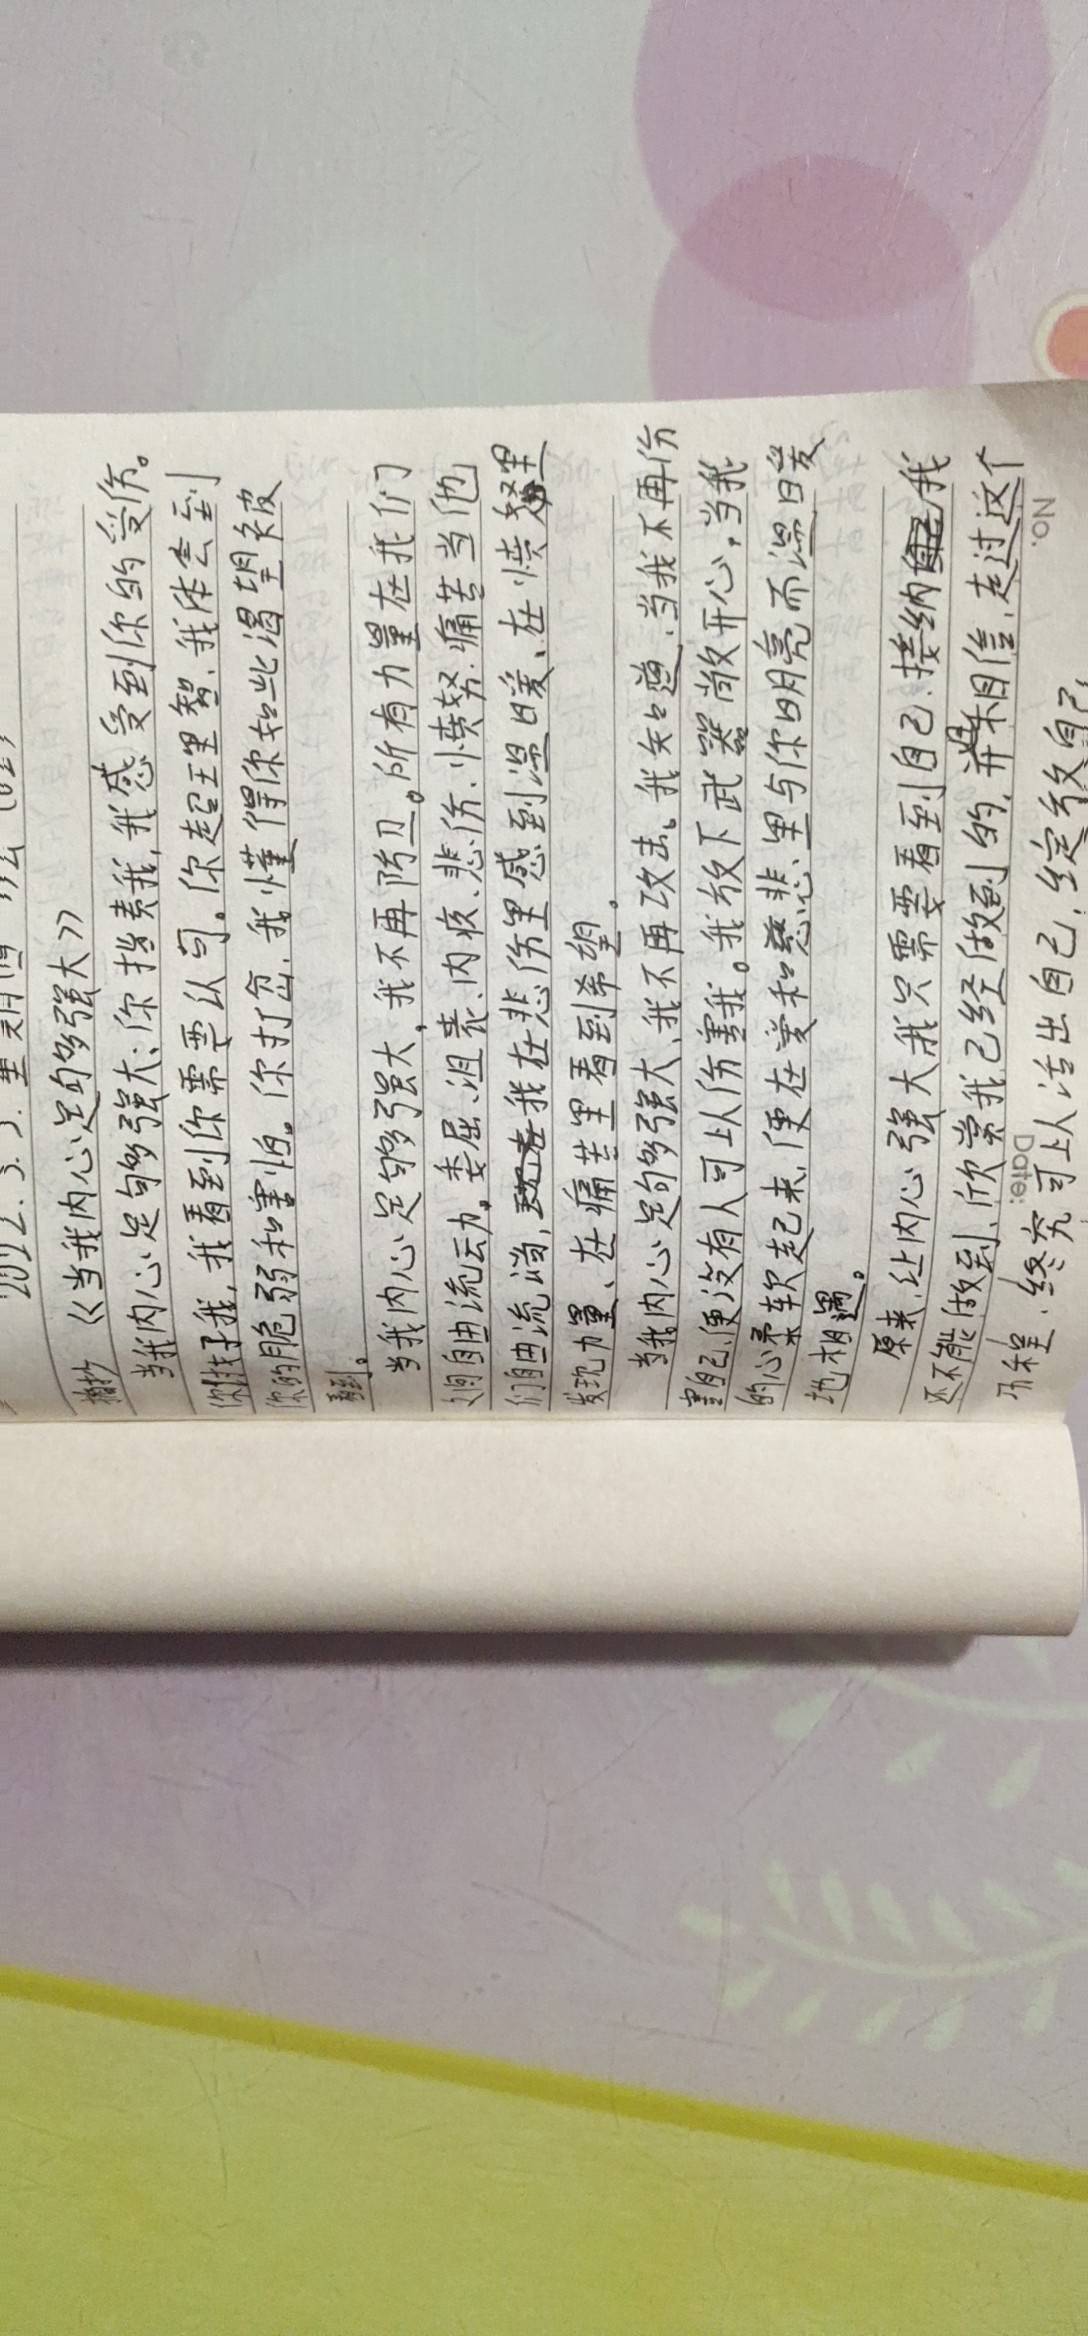 2022.3.3. 星期四
摘抄 《当我内心足够强大》
当我内心足够强大、你指责我,我感受到你的受伤。
你讨好我,我看到你需要认可。你超理智、我体会到
你的脆弱和害怕。你打岔、我懂得你如此渴望被
看到。
当我内心足够强大,我不再防卫。所有力量在我们
之间自由流动。委屈、沮丧、内疚、悲伤、愤努、痛苦当他
们自由流淌,我在悲伤里感到温暖、在愤怒里
发现力量、在痛苦里看到希望。
当我内心足够强大、我不再攻击。我知道、当我不再伤
害自己、便没有人可以伤害我。我放下武器敞开心。当我
的心柔软起来、便在爱和慈悲、里与你明亮而温暖
地相遇。
原来、让内心强大我只需要看到自己、接纳我
还不能做到、欣赏我已经做到的、并且相信、走过这个
历程、终究可以活出自己、绽放自己,
No.
Date: